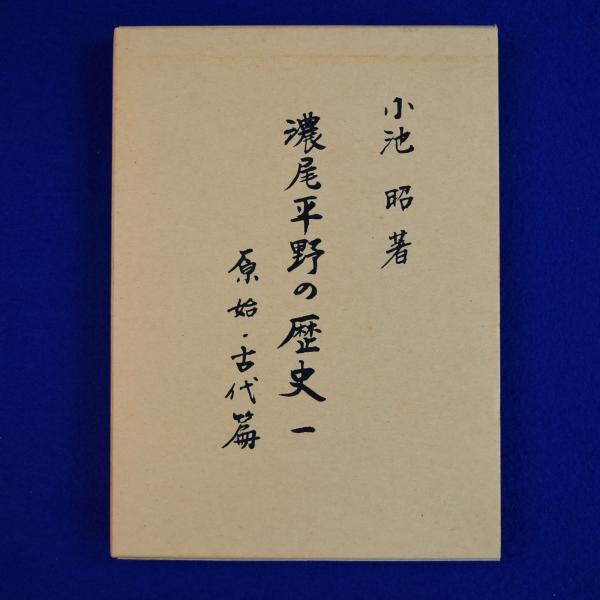 小池 昭 著
濃尾平野の歴史 一
原始・古代篇